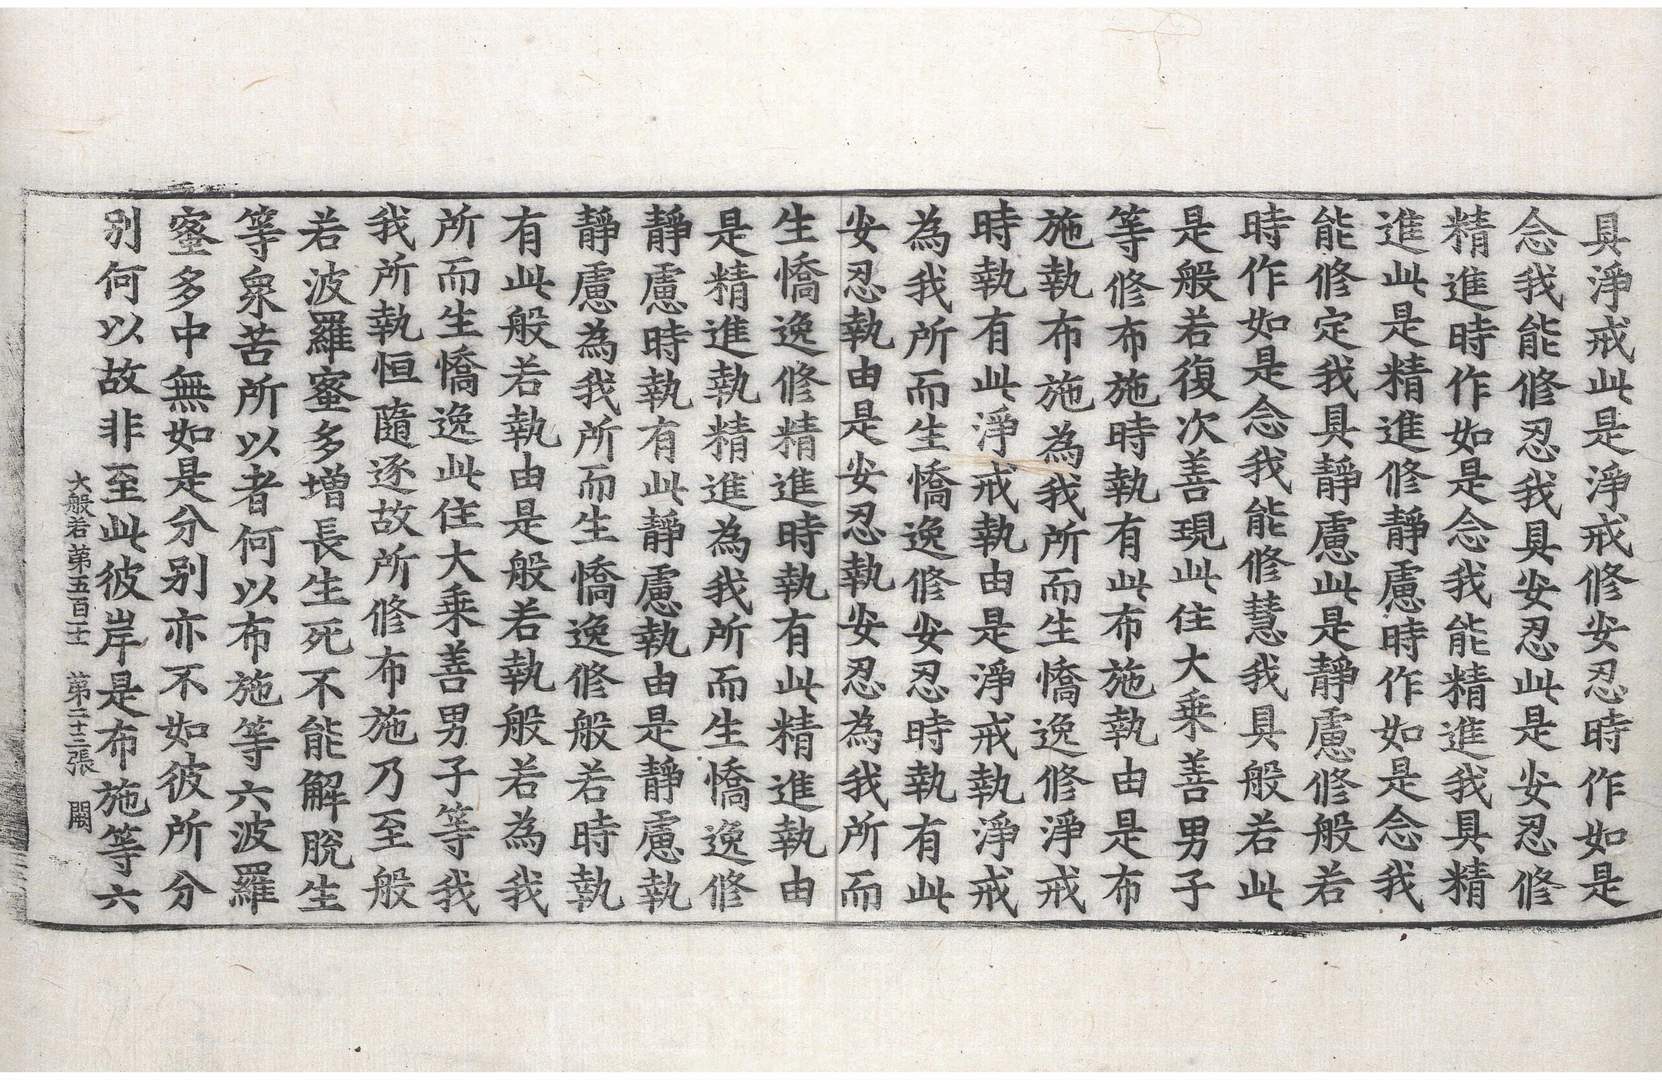 具淨戒此是淨戒修安忍時作如是
念我能修忍我具安忍此是安忍修
精進時作如是念我能精進我具精
進此是精進修靜慮時作如是念我
能修定我具靜慮此是靜慮修般若
時作如是念我能修慧我具般若此
是般若復次善現此住大乘善男子
等修布施時執有此布施執由是布
施執布施為我所而生憍逸修淨戒
時執有此淨戒執由是淨戒執淨戒
為我所而生憍逸修安忍時執有此
安忍執由是安忍執安忍為我所而
生憍逸修精進時執有此精進執由
是精進執精進為我所而生憍逸修
靜慮時執有此靜慮執由是靜慮執
靜慮為我所而生憍逸修般若時執
有此般若執由是般若執般若為我
所而生憍逸此住大乘善男子等我
我所執恒隨逐故所修布施乃至般
若波羅蜜多增長生死不能解脫生
等衆苦所以者何以布施等六波羅
蜜多中無如是分別亦不如彼所分
別何以故非至此彼岸是布施等六
大般若第五百十二 第二十三張